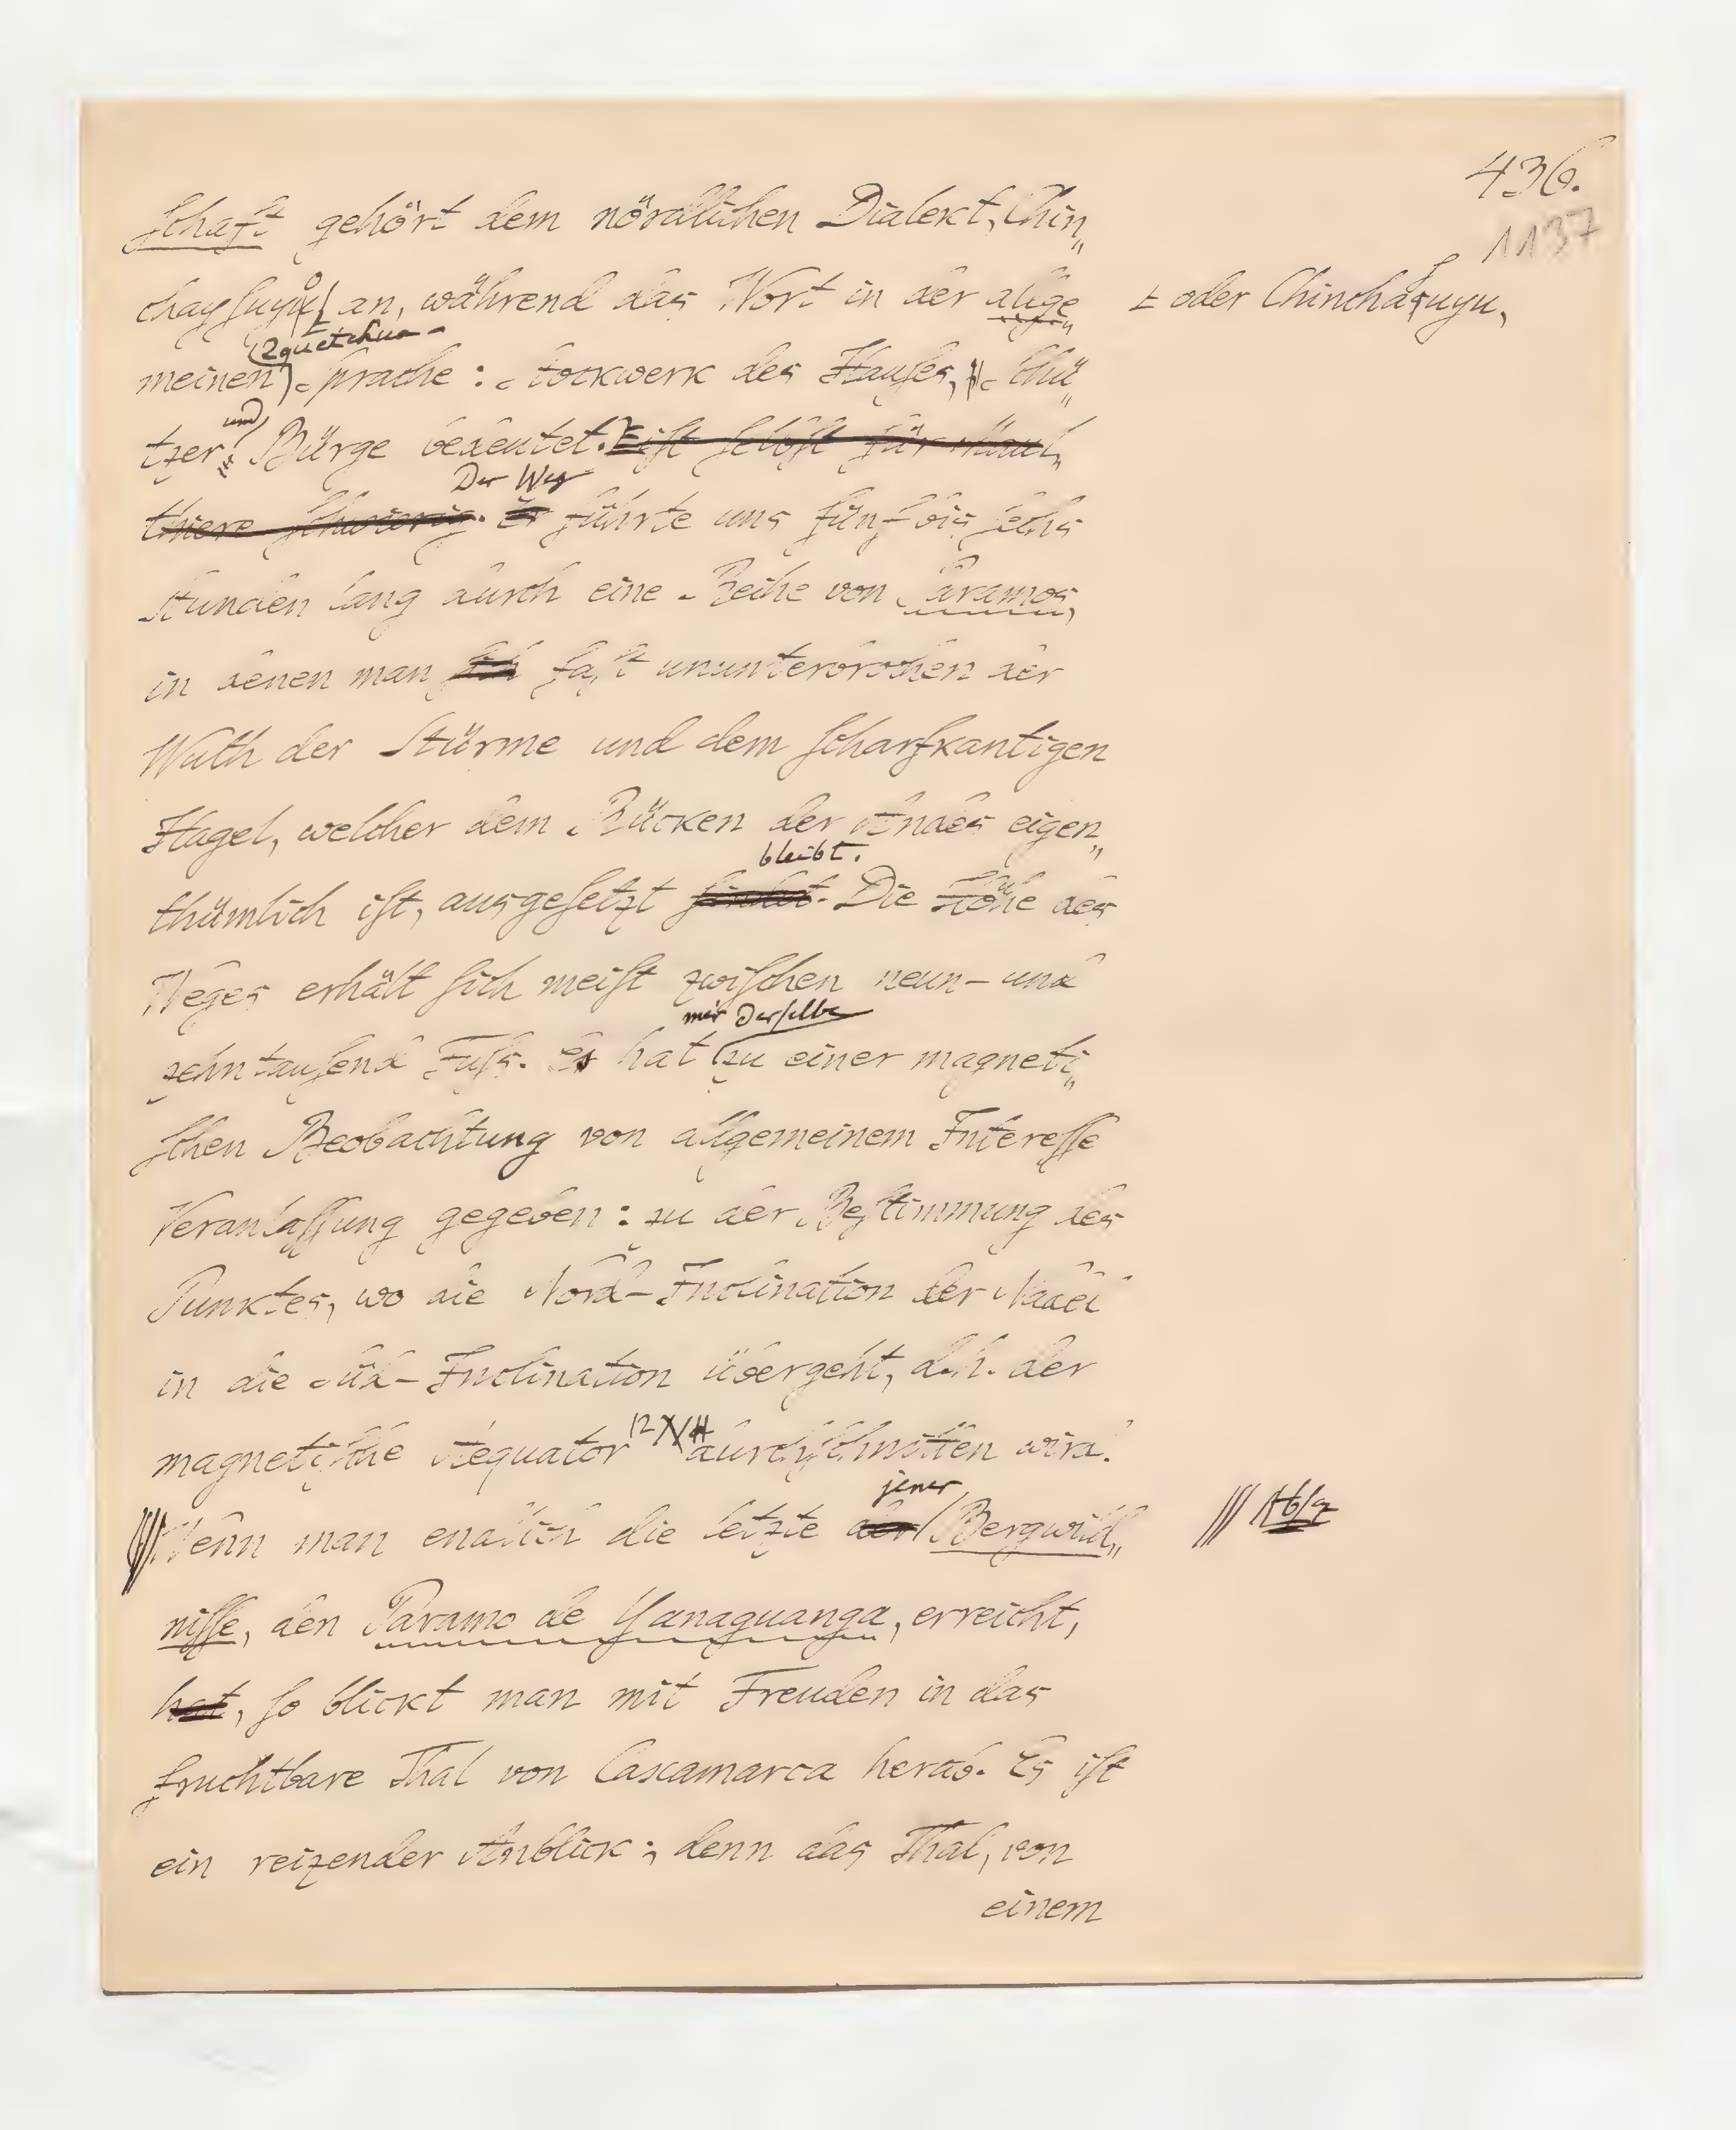 436.
1137
ſchaft gehört dem nördlichen Dialekt, Chin„
chayſuyu an, während das Wort in der allge„
⊥ oder Chinchaſuyu,
Quetchua-
meinen Sprache: Stockwerk des Hauſes, Schü„
und
tzer, Bürge bedeutet. Er iſt ſelbſt für Maul„
Der Weg
thiere ſchwierig. Er führte uns fünf bis ſechs
Stunden lang durch eine Reihe von Páramos,
in denen man ſich faſt ununterbrochen der
Wuth der Stürme und dem ſcharfkantigen
Hagel, welcher dem Rücken der Andes eigen„
bleibt.
thümlich iſt, ausgeſetzt findet. Die Höhe des
Weges erhält ſich meiſt zwiſchen neun- und
mir Derſelbe
zehntauſend Fuſs. Es hat zu einer magneti„
ſchen Beobachtung von allgemeinem Intereſſe
Veranlaſſung gegeben: zu der Beſtimmung des
Punktes, wo die Nord-Inclination der Nadel
in die Süd-Inclination übergeht, d.h. der
12
magnetiſche Aequator durchſchnitten wird.
jener
Wenn man endlich die letzte der Bergwild„
Abſz
niſſe, den Paramo de Yanaguanga, erreicht,
hat, ſo blickt man mit Freuden in das
fruchtbare Thal von Caxamarca herab. Es iſt
ein reizender Anblick; denn das Thal, von
einem